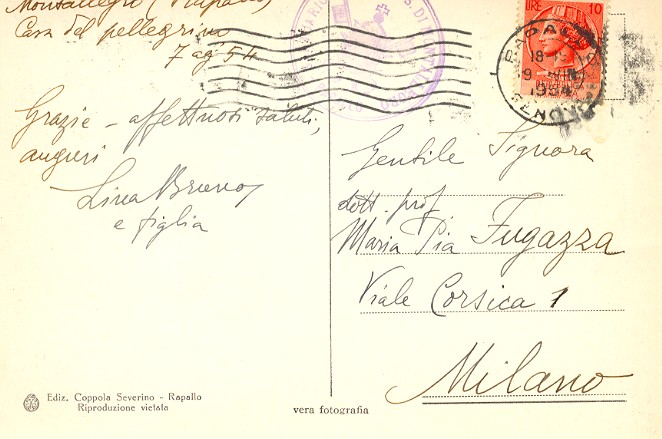 Montallegro (Rapallo)
Casa del pellegrino
7 ag 54
Grazie - affettuosi saluti,
auguri
Lina Bruno
e figlia
LIRE 10
RAPALLO
18-
1954
GENOVA
Gentile Signora
dott. prof
Maria Pia Fugazza
Viale Corsica 1
Milano
Ediz. Coppola Severino - Rapallo
Riproduzione vietata
vera fotografia